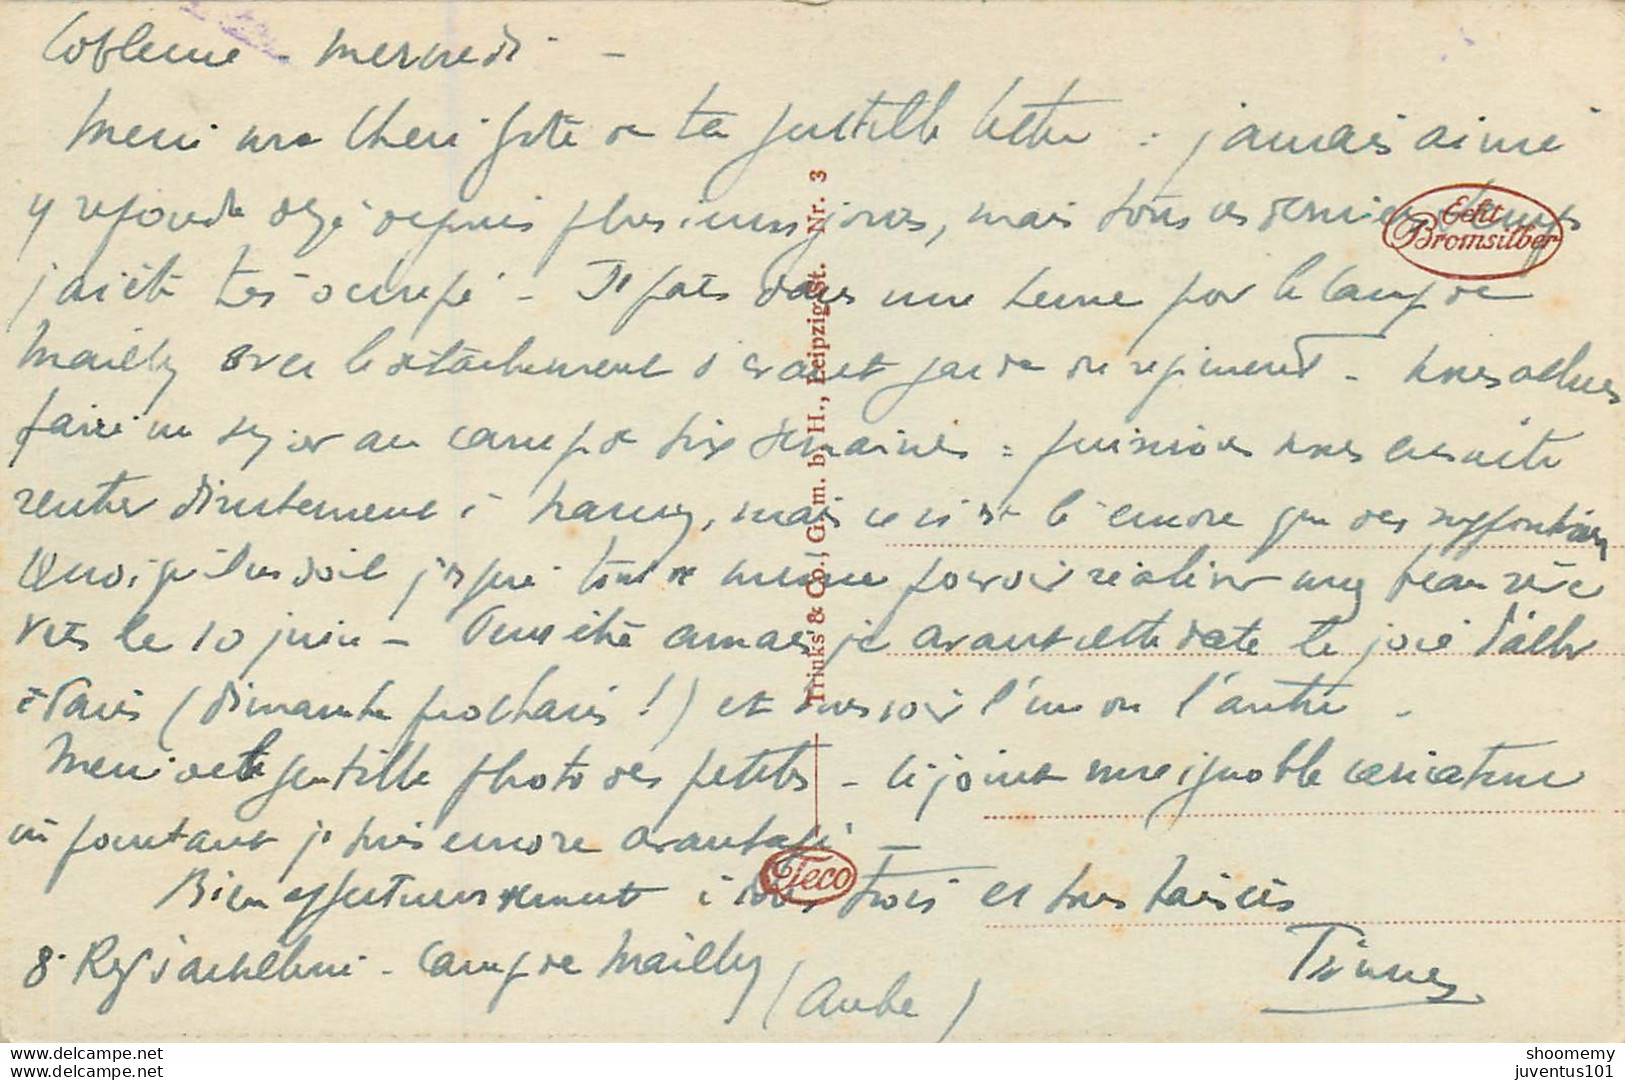 Coblence - Mercredi -
Merci ma chère de ta gentille lettre : j'aurais aimé
y répondre déjà depuis plusieurs jours, mais tous ces derniers temps
j'ai été très occupé - Je pars dans une heure pour le Camp de
Mailly avec le détachement d'avant garde du régiment - Nous allons
faire un séjour au camp de six semaines : puissions nous ensuite
rentrer directement à Nancy, mais ceci est là encore que des suppositions
Quoiqu'il en soit j'espère tout de même pouvoir réaliser mon beau rêve
vers le 10 juin - Peut être aurais je avant cette date la joie d'aller
à Paris (dimanche prochain !) et vous voir l'un ou l'autre -
Merci de la gentille photo des petits - ci joint une ignoble caricature
où pourtant je suis encore avantagé -
Bien affectueusement à vous trois et bons baisers
8e Reg d'artillerie - Camp de Mailly
(Aube)
Echt
Bromsilber
Trinks & Co., G. m. b. H., Leipzig St. Nr. 3
Teco
dos scan
carte vendue en l'état
shoomemy
juventus101